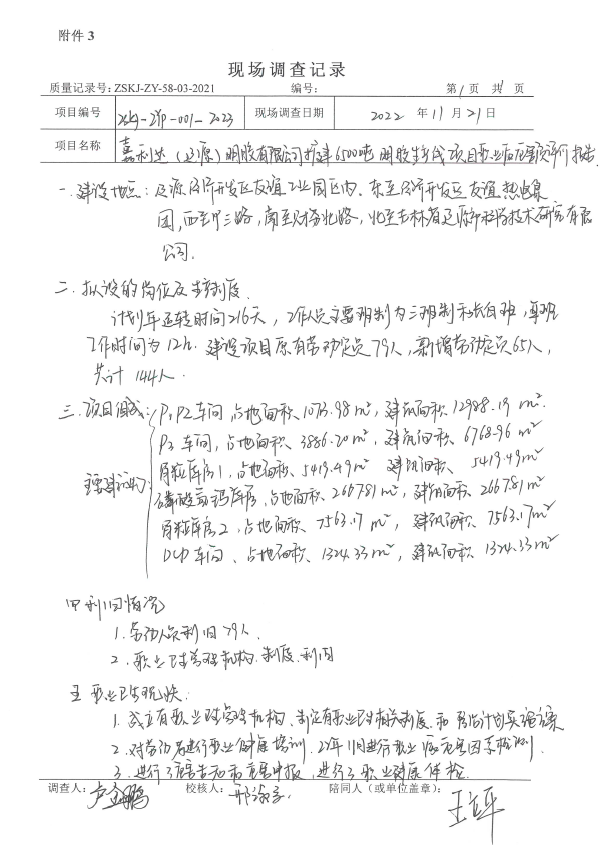 附件 3
现场调查记录
质量记录号: ZSKJ-ZY-58-03-2021 编号: 第1页 共1页
项目编号 ZSKJ-ZYP-001-2023 现场调查日期 2022 年 11月 21日
项目名称 嘉利达（辽源）明胶有限公司扩建6500吨明胶生产线项目职业病危害预评价报告
一、建设地点：辽源经济开发区友谊工业园区内、东至经济开发区友谊热电集
团,西至甲三路,南至财富北路,北至吉林省辽源市科学技术研究有限
公司.
二、拟设的岗位及生产制度
计划年运转时间216天，工作人员主要班制为三班制和长白班,单班
工作时间为12h. 建设项目原有劳动定员79人,新增劳动定员65人,
共计 144人.
三、项目组成:
主要建(构)筑物:
P1P2车间,占地面积、1073.98m²,建筑面积12988.19 m².
P3车间,占地面积、3886.20m²,建筑面积 6768.96 m²
骨粒库房1,占地面积、5419.49m² 建筑面积、5419.49m²
磷酸氢钙库房,占地面积、2667.81m²,建筑面积2667.81m²
骨粒库房2,占地面积、7563.17 m²,建筑面积、7563.17m²
DCP车间、占地面积、1324.33m²,建筑面积 1324.33m²
四 利旧情况
1.劳动人员利旧79人.
2.职业卫生管理机构、制度、利旧
五 职业卫生现状.
1.成立有职业卫生管理机构、制定有职业卫生相关制度、和 计划实施
2.对劳动者进行职业健康培训. 22年11月进行职业病危害因素检测.
3.进行了 告知和危害申报，进行了职业健康体检.
调查人: 校核人: 陪同人（或单位盖章）: 王立平